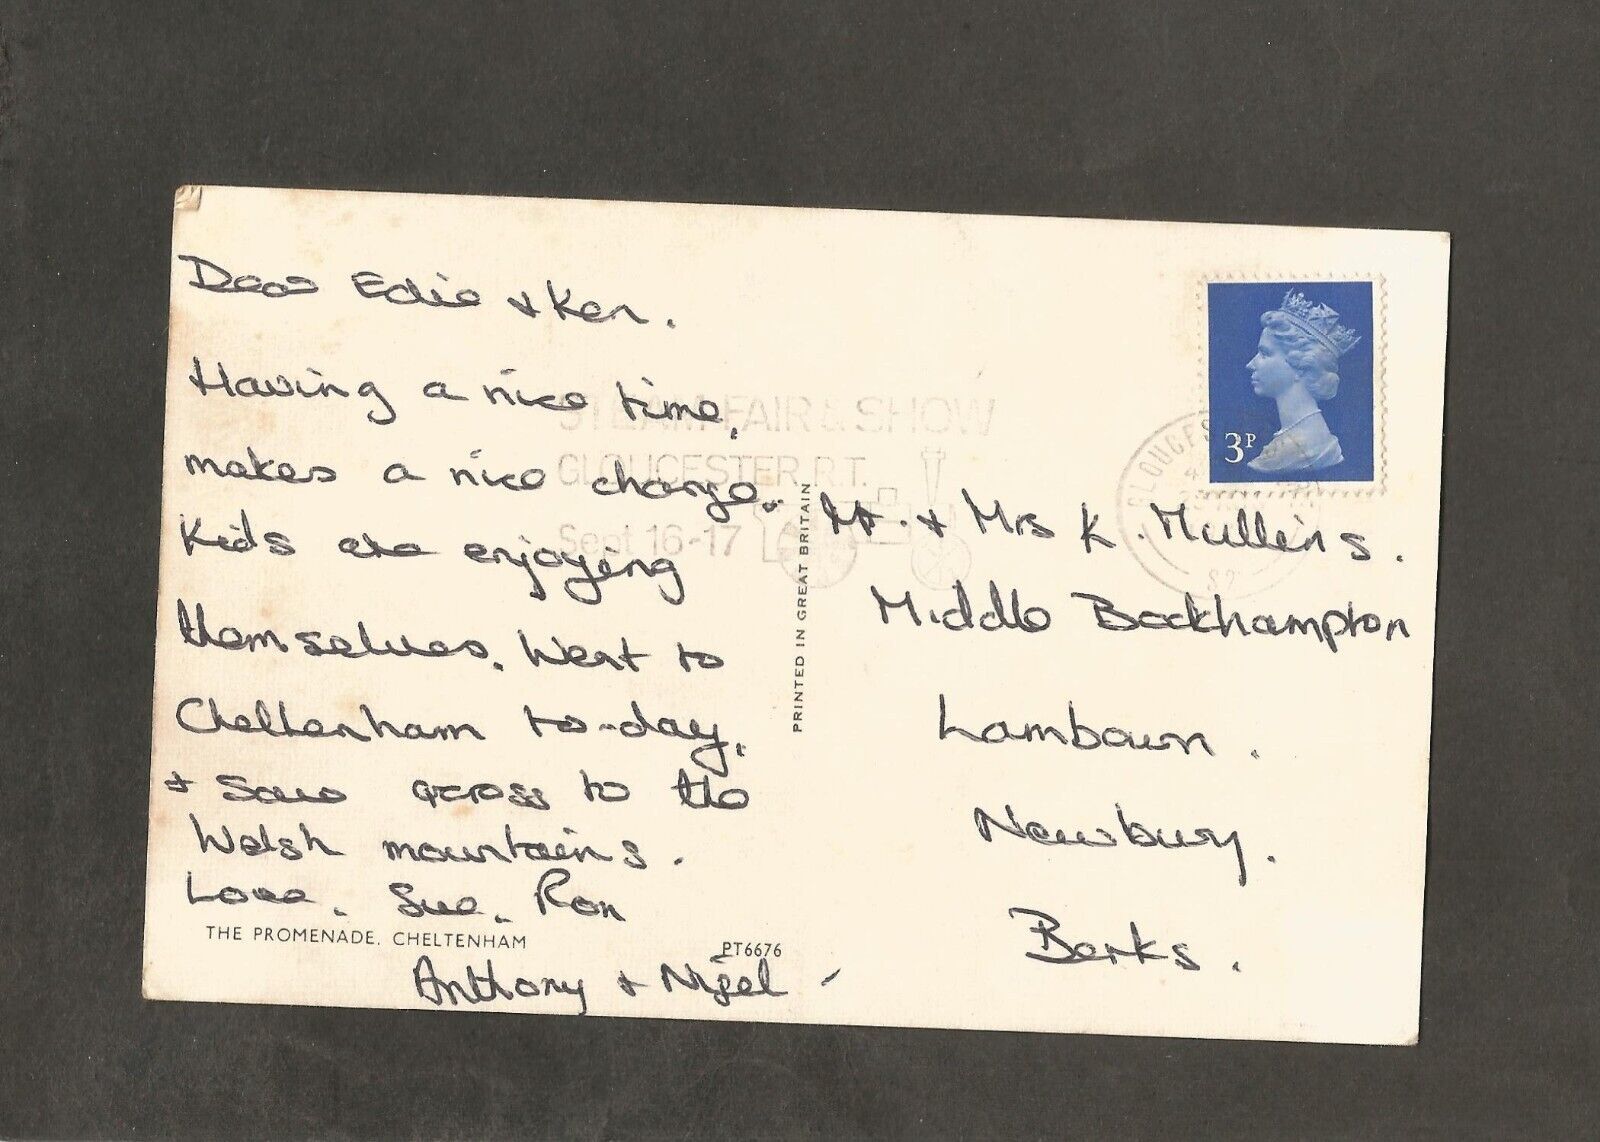 Dear Edie + Ken.
Having a nice time,
makes a nice change.
Kids are enjoying
themselves. Went to
Cheltenham to-day,
+ saw across to the
Welsh mountains.
Love. Sue. Ron
Anthony + Nigel
THE PROMENADE. CHELTENHAM
PT6676
PRINTED IN GREAT BRITAIN
STEAM FAIR & SHOW
GLOUCESTER R.T.
Sept 16-17
3P
GLOUCES
Mr. + Mrs K. Mullins.
Middle Bockhampton
Lambourn.
Newbury.
Berks.